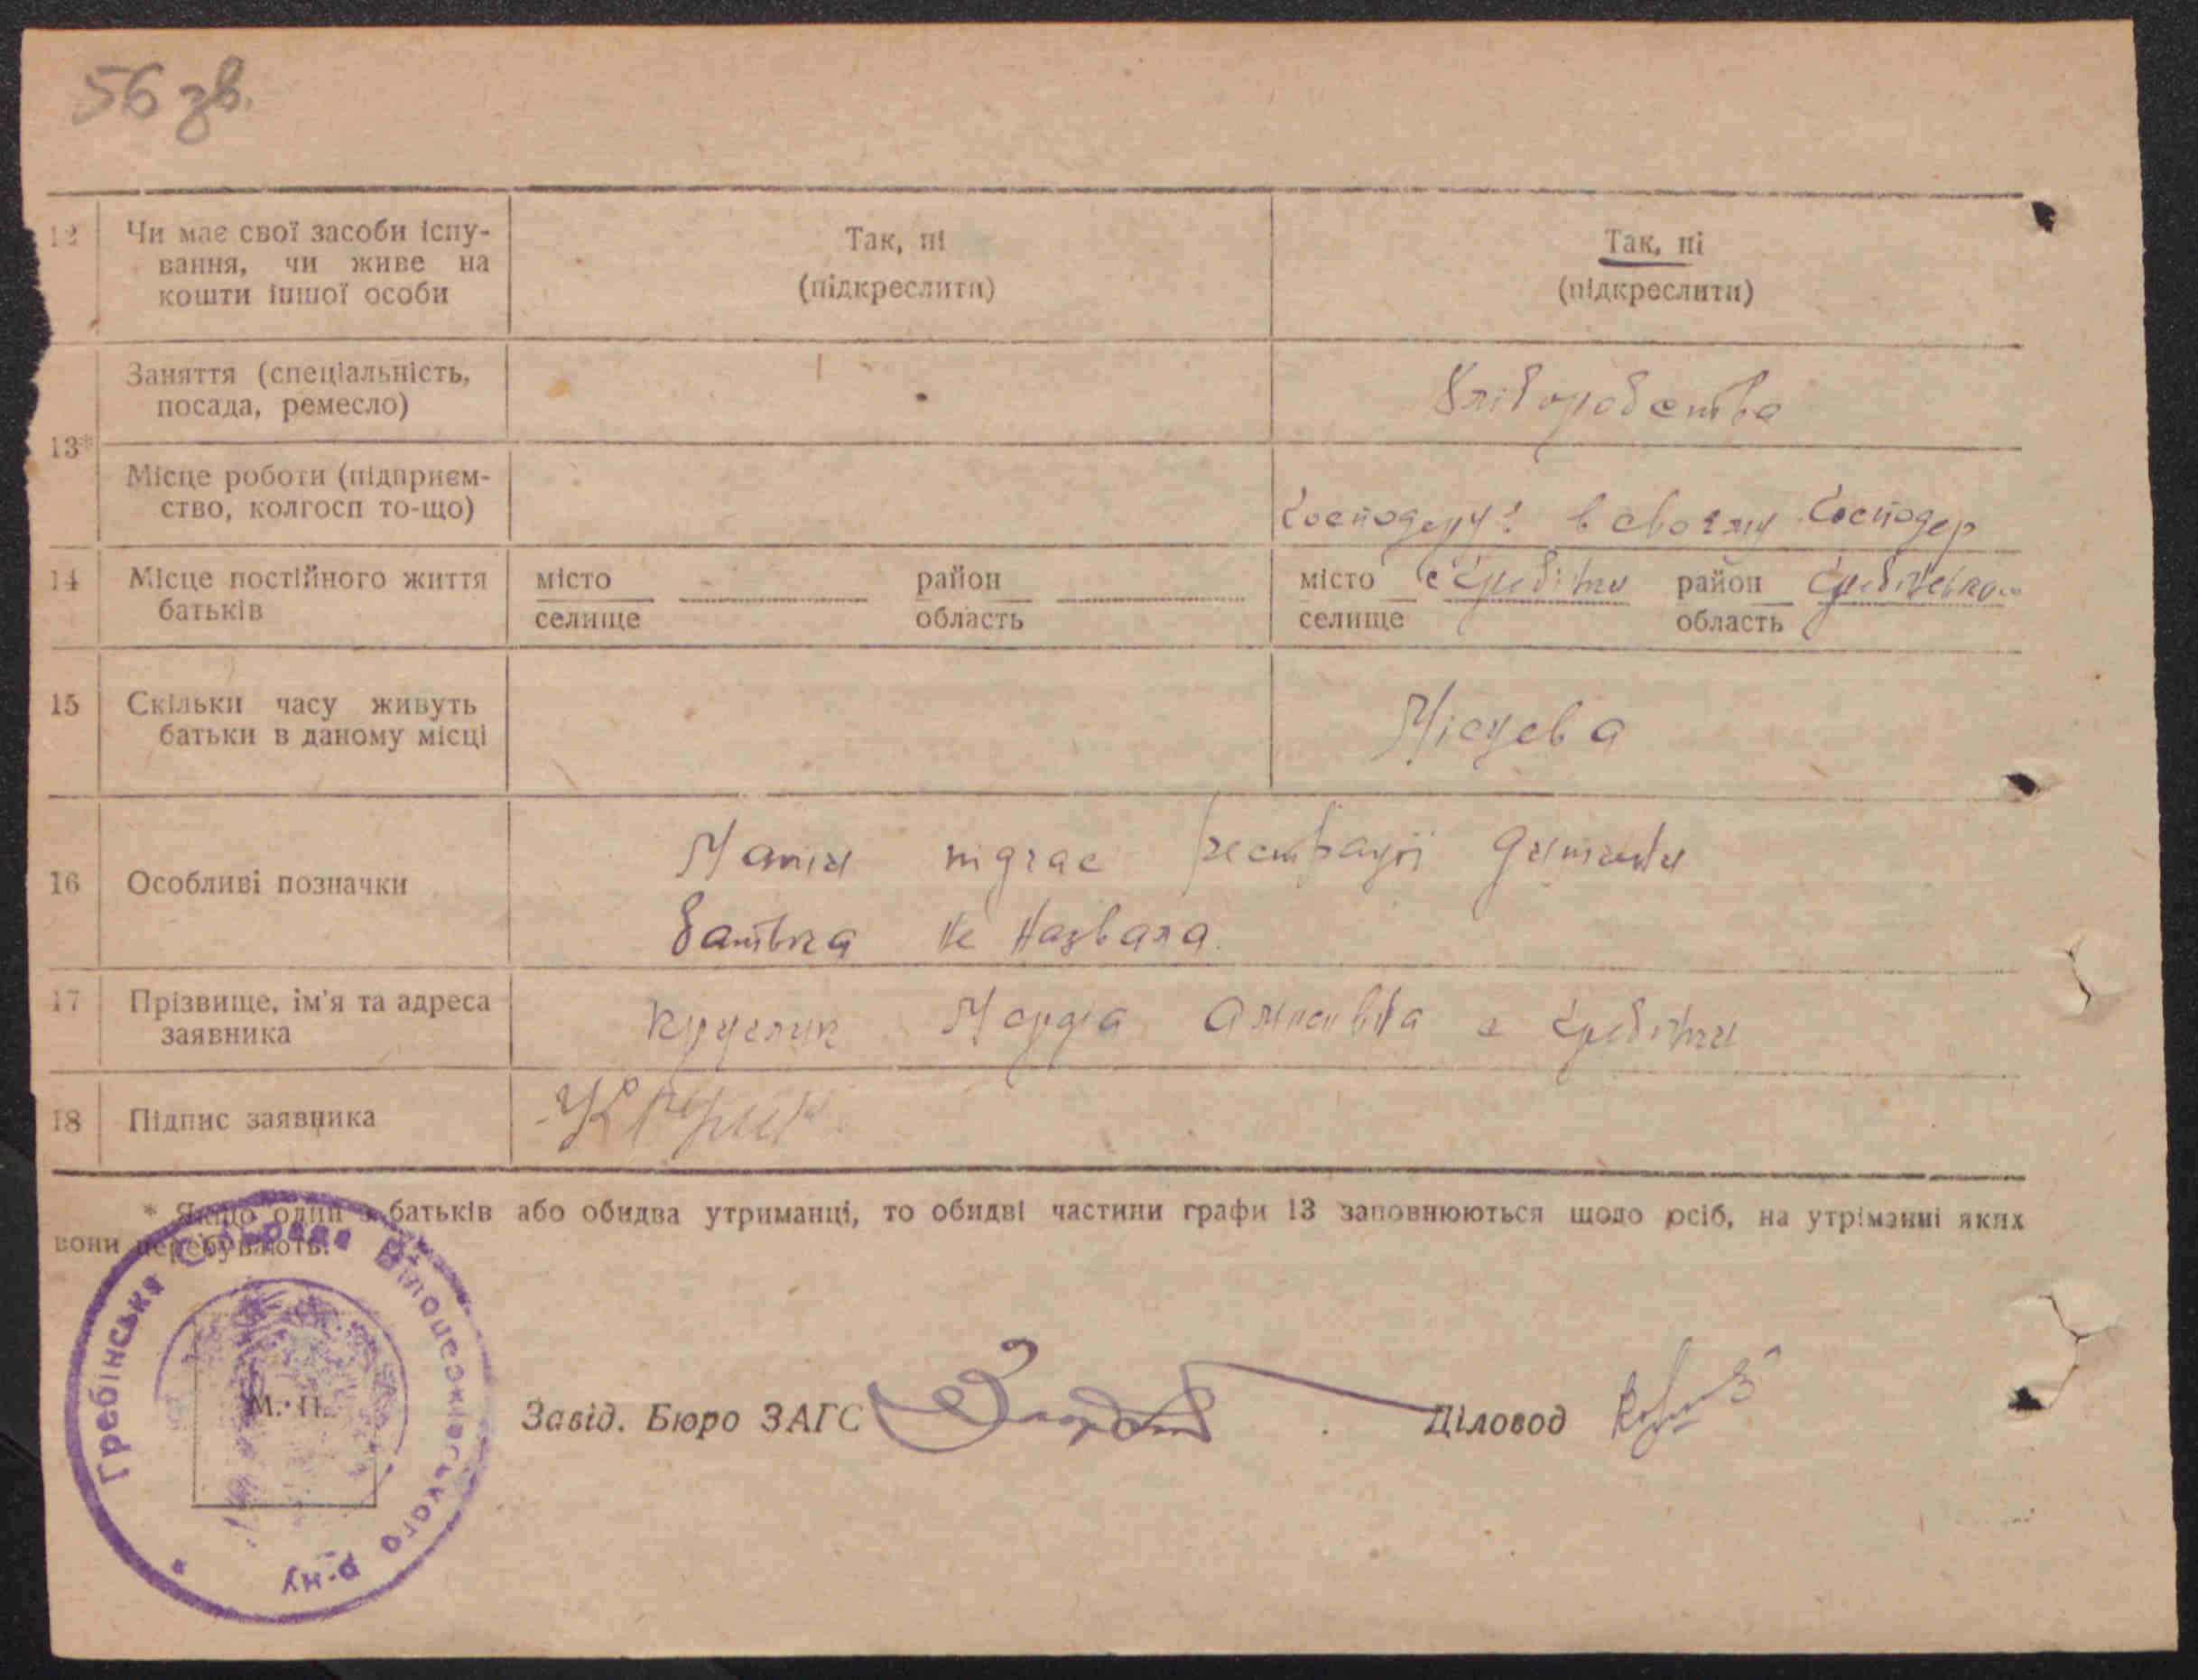 56 зв.
12 Чи має свої засоби існу-
вання, чи живе на
кошти іншої особи
Так, ні
(підкреслити)
Так, ні
(підкреслити)
13*
Заняття (спеціальність,
посада, ремесло)
Хліборобства
Місце роботи (підприєм-
ство, колгосп то-що)
в своєму господар
14 Місце постійного життя
батьків
місто район
селище область
місто с Гребінки район Гребінківко
селище область
15 Скільки часу живуть
батьки в даному місці
Місцева
16 Особливі позначки
Мати дитини
батька не назвала.
17 Прізвище, ім'я та адреса
заявника
Марія с Гребінки
18 Підпис заявника
* Якщо один з батьків або обидва утриманці, то обидві частини графи 13 заповнюються щодо осіб, на утриманні яких
вони перебувають.
Гребінська С. Рада Білоцерківського р-ну
М. П.
Завід. Бюро ЗАГС
Діловод